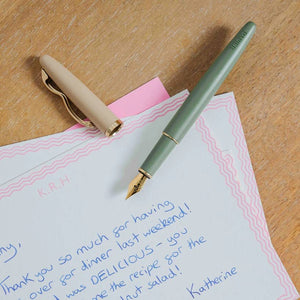 K.R.H
ny,
Thank you so much for having
over for dinner last weekend!
d was DELICIOUS - you
me the recipe for the
lnut salad!
Katherine